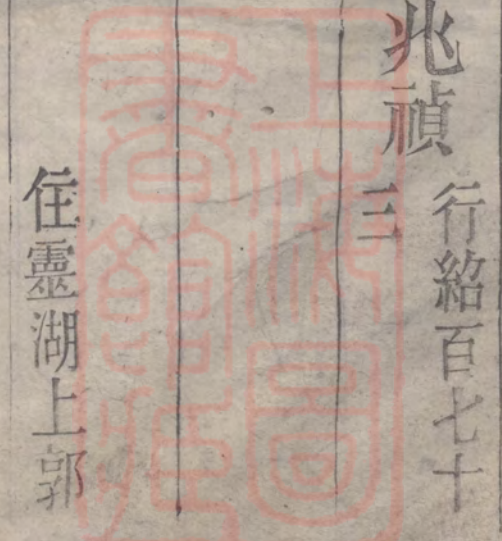 兆禎
行紹百七十
三
住靈湖上郭
上海圖
書館藏